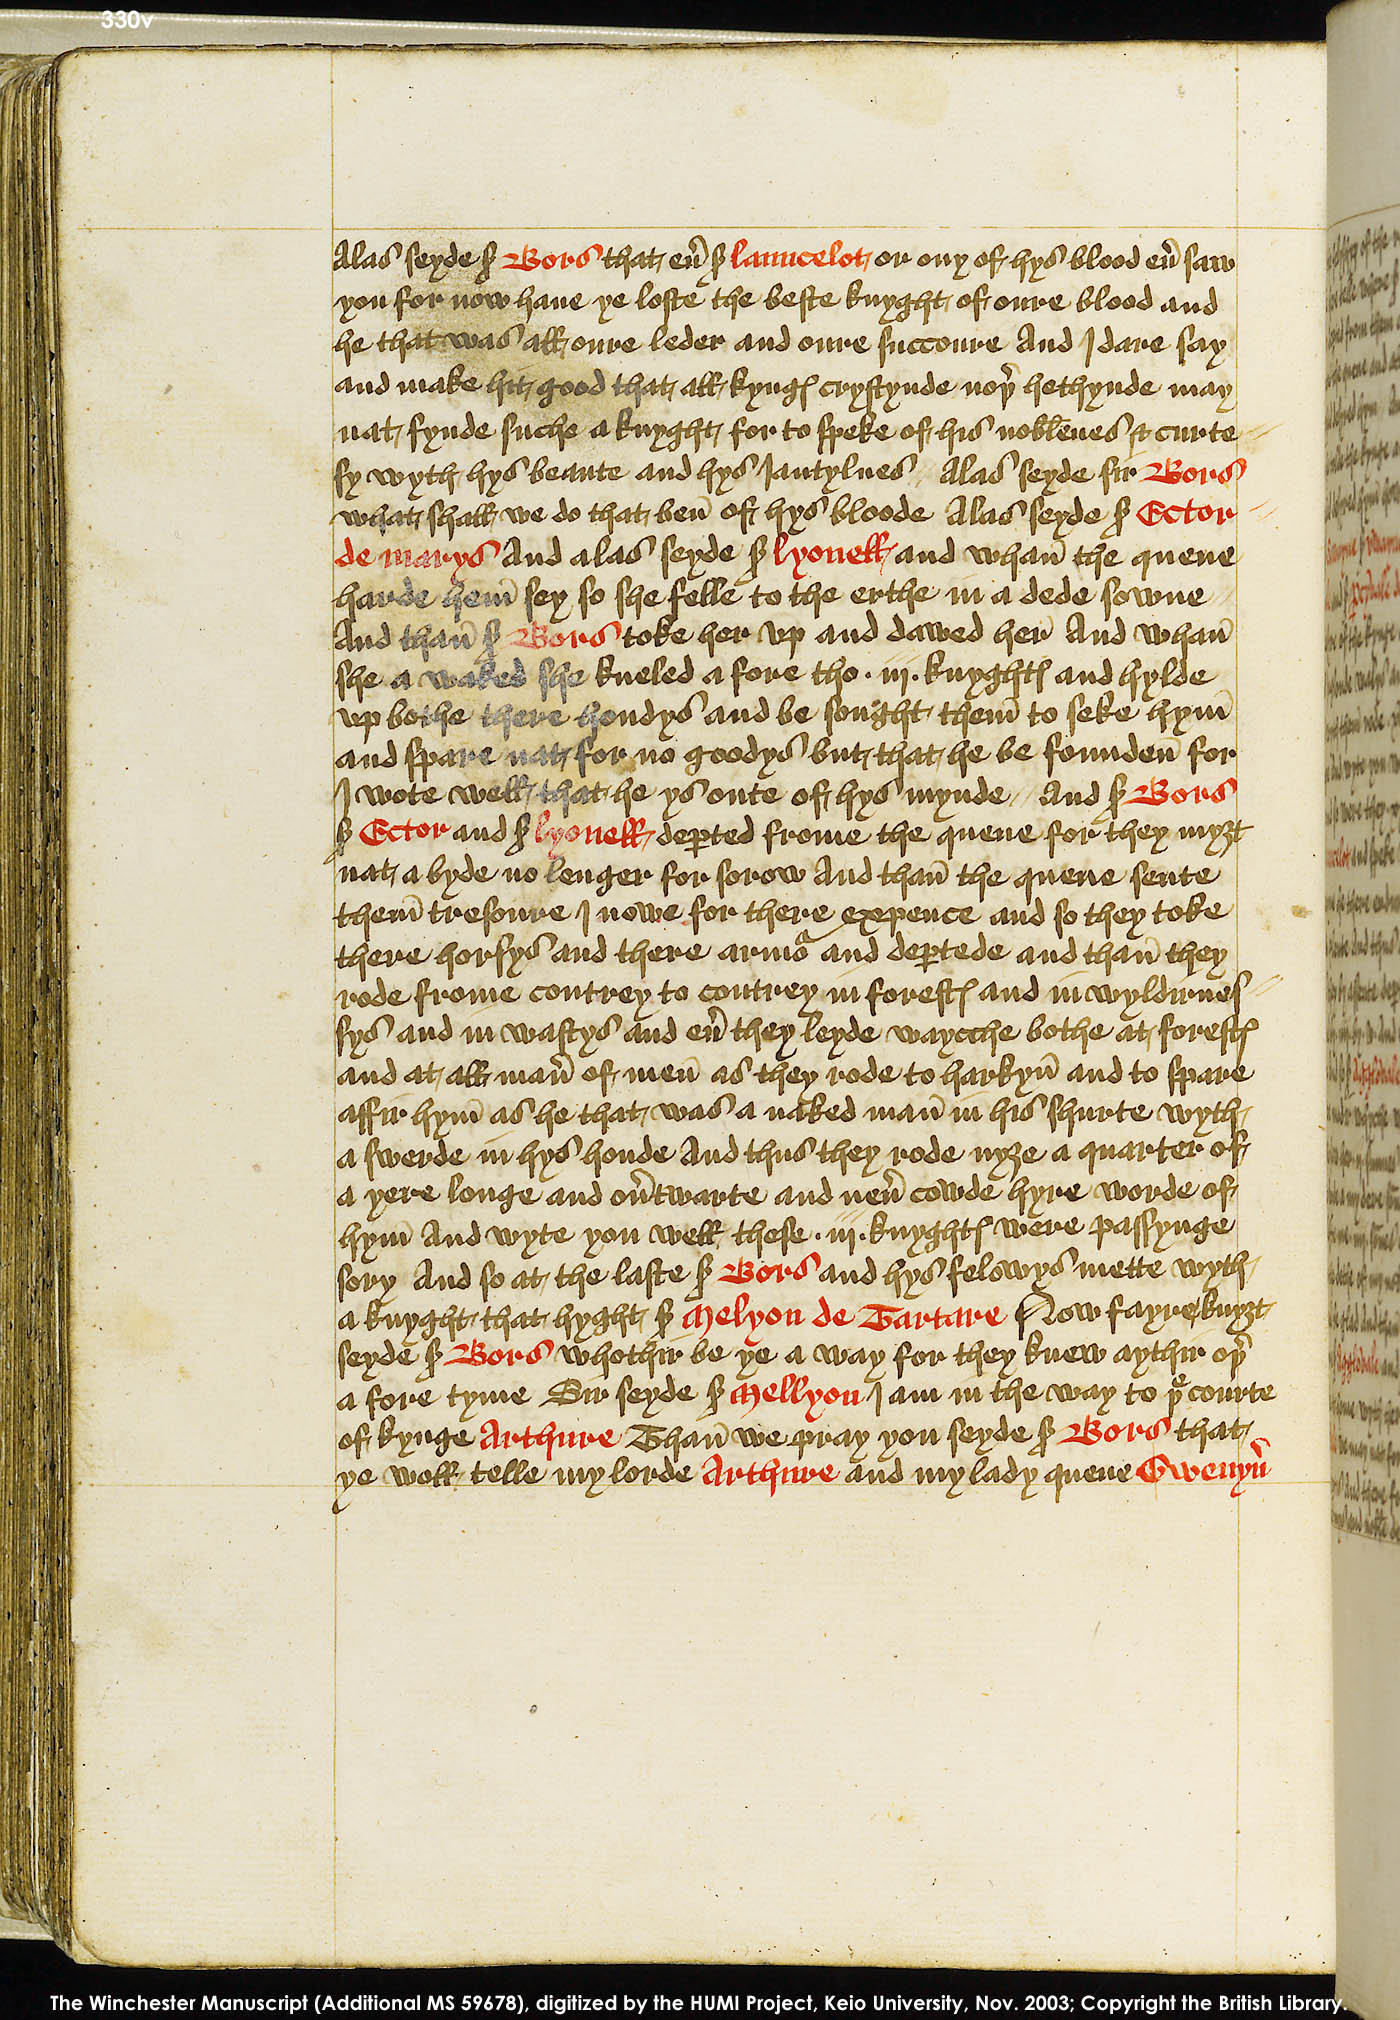 330v
Alas seyde sͬ Bors that eu̾ sͬ launcelot or ony of hys blood eu̾ saw
you for now haue ye loste the beste knyght of oure blood and
he that was all oure leder and oure succoure And I dare say
and make hit good that all kyngꝭ crystynde noþ̾ hethynde may
nat fynde suche a knyght for to speke of his noblenes & curte
sy wyth hys beaute and hys Jantylnes // Alas seyde sir Bors
what shall we do that ben̄ of hys bloode Alas seyde sͬ Ector
de marys And alas seyde sͬ lyonell and whan̄ the quene
harde hem̄ sey so she felle to the erthe in a dede sowne //
And than̄ sͬ Bors toke her vp and dawed her̄ And whan̄
she a waked she kneled a fore tho · iij · knyghtꝭ and hylde
vp bothe there hondys and be sought them̄ to seke hym̄
and spare nat for no goodys but that he be founden̄ for
I wote well that he ys oute of hys mynde // And sͬ Bors
sͬ Ector and sͬ lyonell deꝑted frome the quene for they myȝt
nat a byde no lenger for sorow And than̄ the quene sente
them̄ tresoure I nowe for there expence and so they toke
there horsys and there armoᷓ and deꝑtede and than̄ they
rode frome contrey to contrey in forestꝭ and in wyldirnes //
sys and in wastys and eu̾ they leyde waycche bothe at forestꝭ
and at all man̾ of men̄ as they rode to harkyn̄ and to spare
affir hym̄ as he that was a naked man̄ in his shurte wyth
a swerde in hys honde And thus they rode nyȝe a quarter of
a yere longe and ou̾twarte and neu̾ cowde hyre worde of
hym̄ And wyte you well these · iij · knyghtꝭ were passynge
sory And so at the laste sͬ Bors and hys felowys mette wyth
a knyght that hyght sͬ Melyon de Tartare Now fayre knyȝt
seyde sͬ Bors whothir be ye a way for they knew aythir oþ̾
a fore tyme Sir seyde sͬ Mellyon I am in the way to þͤ courte
of kynge Arthure Than̄ we pray you seyde sͬ Bors that
ye woll telle my lorde Arthure and my lady quene Gwenyu̾
The Winchester Manuscript (Additional MS 59678), digitized by the HUMI Project, Keio University, Nov. 2003; Copyright the British Library.